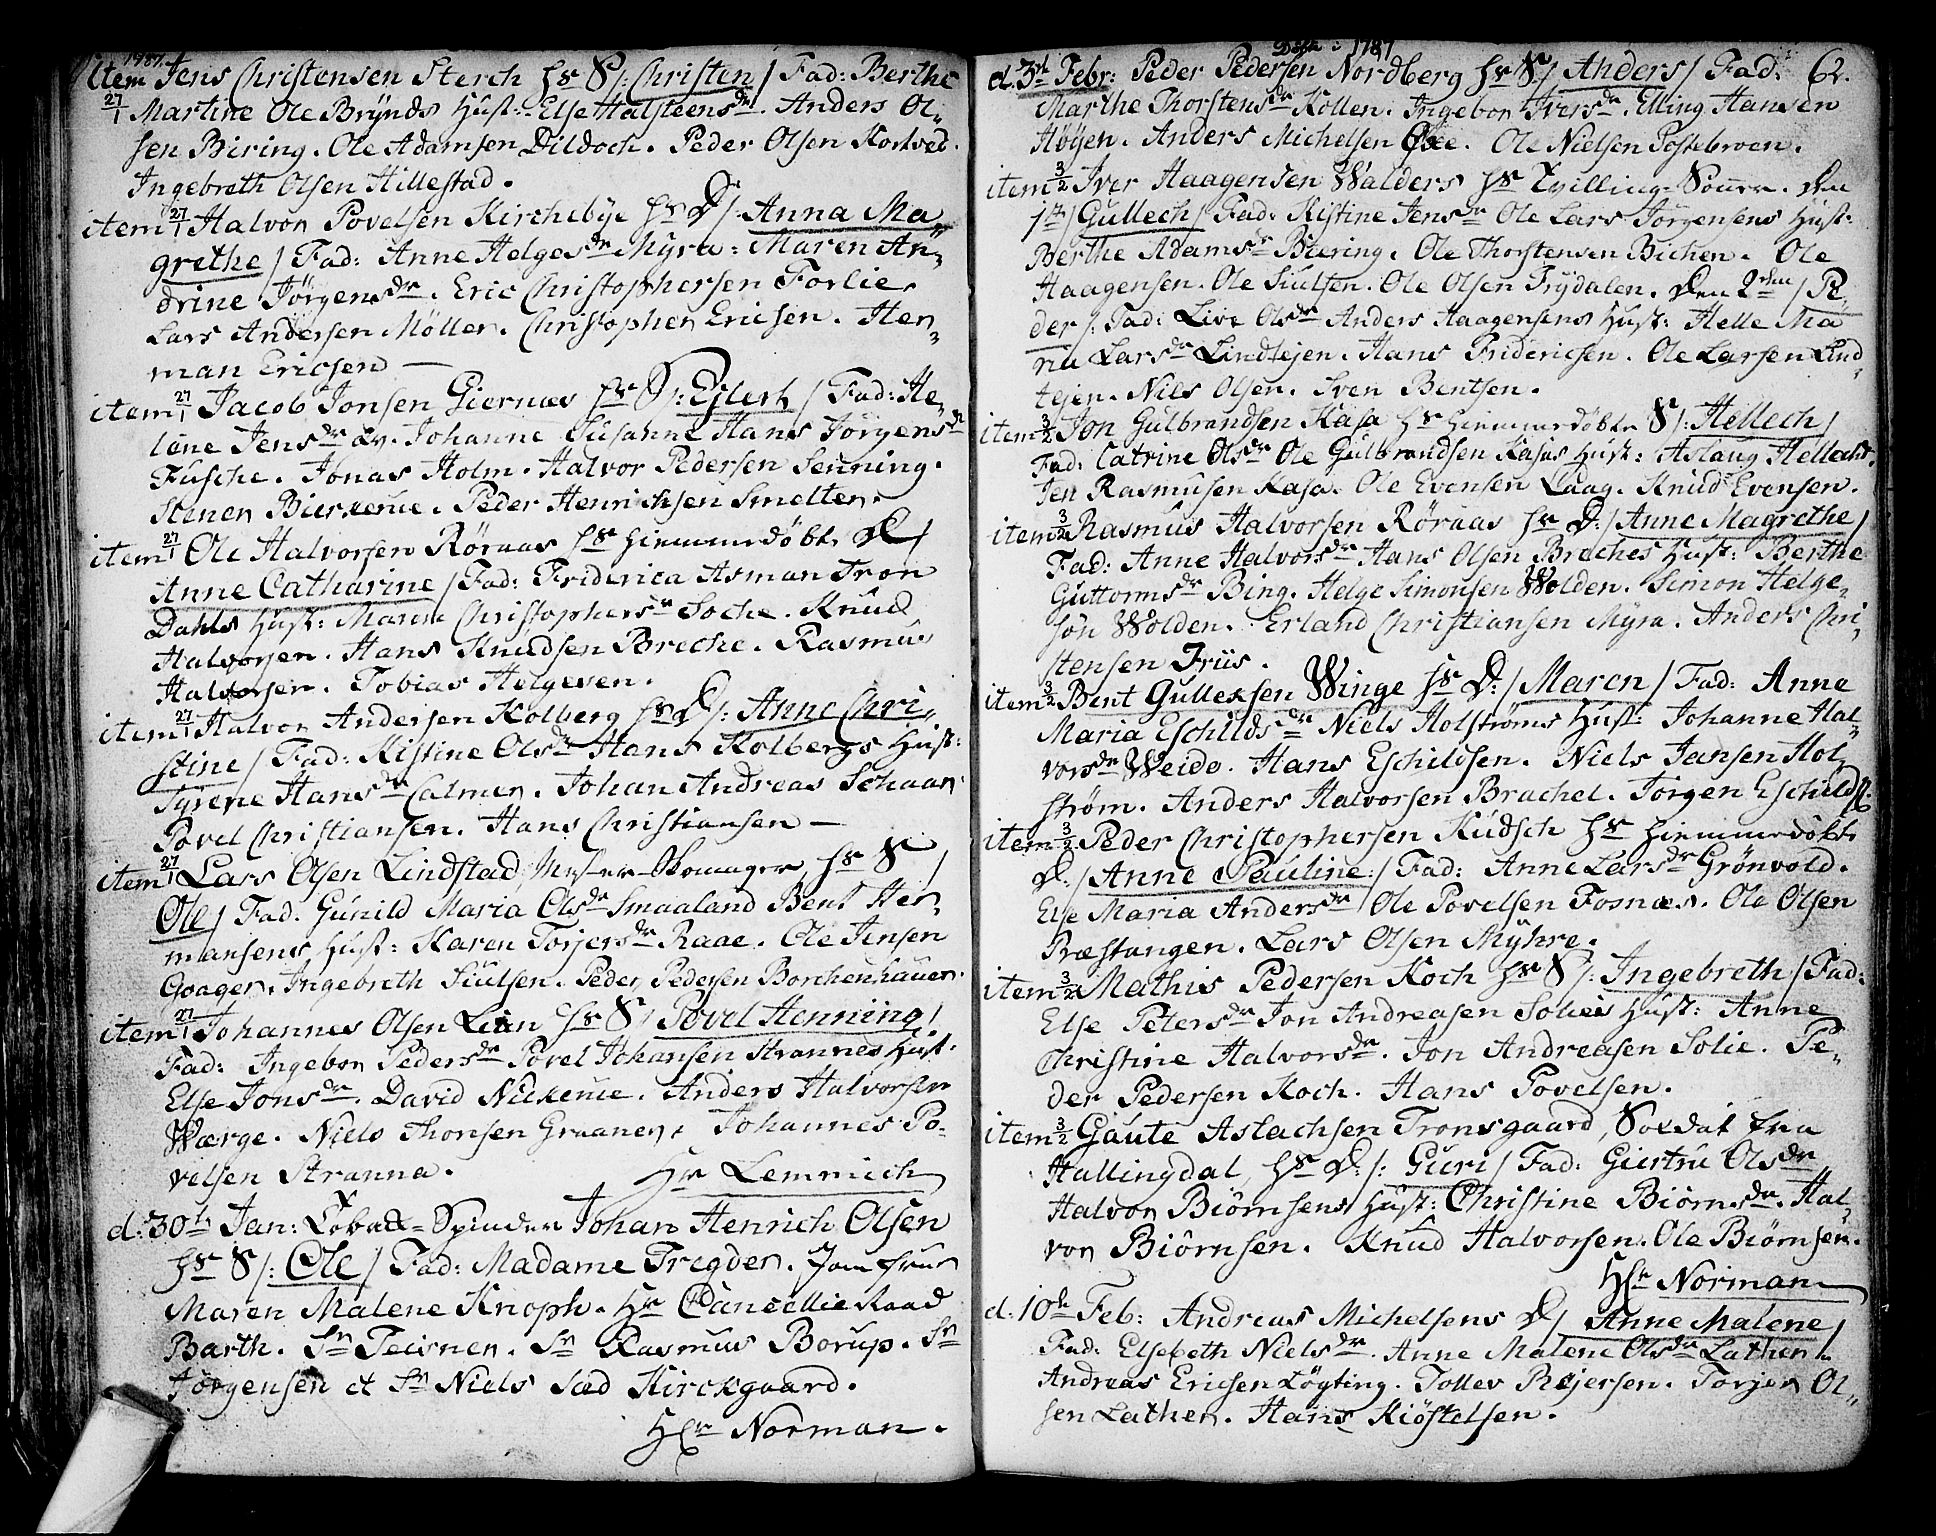 1787.
Item Jens Christensen Sterch hs S/: Christen / Fad: Berthe
27/1 Martine Ole Brynds Hust: Else Halsteensdr. Anders Ol-
sen Biring. Ole Adamsen Dildoch. Peder Olsen Kortved.
Ingebreth Olsen Hillestad.
item 27/1 Halvor Povelsen Kirchebÿe hs D/: Anna Ma
grethe / Fad: Anne Helgesdr Myra: Maren An-
drine Jörgensdr. Eric Christophersen Forlie.
Lars Andersen Möller. Christopher Ericsen. Her-
man Ericsen —
item 27/1 Jacob Jonsen Giernæs hs S: Ejlert / Fad: He-
lene Jensdr Johanne Susanne Hans Jörgensdr
Fusche. Jonas Holm. Halvor Pedersen Senning.
Stener Bierkerue. Peder Henrichsen Smelter.
item 27/1 Ole Halvorsen Röraas hs hiemmedöbte D/
Anne Catharine / Fad: Friderica Asman Tron
Dahls Hust: Maren Christophersdr Soche. Knud
Halvorsen. Hans Knudsen Breche. Rasmus
Halvorsen. Tobias Helgesen.
item 27/1 Halvor Andersen Kolberg hs D/: Anne Chri-
stine / Fad: Kistine Olsdr Hans Kolbergs Hust:
Syrene Hansdr Calmer. Johan Andreas Schaar
Povel Christiansen. Hans Christiansen —
item 27/1 Lars Olsen Lindstad, Mester Skomager, hs S /
Ole / Fad: Gunild Maria Olsdr Smaaland Bent Her-
mansens Hust: Karen Torjersdr Raae. Ole Jensen
Goager. Ingebreth Siulsen. Peder Pedersen Borchenhauer.
item 27/1 Johannes Olsen Lein hs S / Povel Henning /
Fad: Ingebor Pedersdr Povel Johansen Strannes Hust:
Else Jonsdr. David Nickerue. Anders Halvorsen
Wærge. Niels Thonsen Graanes. Johannes Po-
velsen Stranna.
Hr Lemmich
d. 30te Jan: Tobak-Spinder Johan Henrich Olsen
hs S /: Ole / Fad: Madame Tregder. Jomfrue
Maren Malene Knoph. Hr Cancellie Raad
Barth. Sr Teisner. Sr Rasmus Borup. Sr
Jörgensen et Sr Niels Sæd Kirckgaard.
Hr Norman.
Döbte i 1787
62.
d. 3de Febr: Peder Pedersen Nordberg hs S/ Anders / Fad:
Marthe Thorstensdr Kollen. Ingebor Iversdr. Elling Hansen
Höyen. Anders Michelsen Ole Nielsen Postebroen.
item 3/2 Iver Haagensen Walders hs Tvilling-Sönner. den
1ste / Gullech / Fad: Kistine Jensdr Ole Lars Jörgensens Hust:
Berthe Adamsdr Biering. Ole Thorstensen Bichen. Ole
Haagensen. Ole Siulsen. Ole Olsen Trydalen. Den 2den / Pe-
der /: Fad: Live Olsdr Anders Haagensens Hust: Helle Ma
ria Larsdr Lindtejen. Hans Friderichsen. Ole Larsen Lind
tejen. Niels Olsen. Sven Bentsen.
item 3/2 Jon Gulbrandsen Kasa hs hiemmedöbte S/: Hellech /
Fad: Catrine Olsdr Ole Gulbrandsen Kasas Hust: Aslaug Hellechsd.
Jen Rasmusen Kasa. Ole Evensen Laag. Knud Evensen.
item 3/2 Rasmus Halvorsen Röraas hs D: / Anne Magrethe /
Fad: Anne Halvorsdr Hans Olsen Braches Hust: Berthe
Guttormsdr Bing. Helge Simonsen Wolden. Simon Helge-
sön Wolden. Erland Christiansen Myra. Anders Chri-
stensen Friis.
item 3/2 Bent Gullexsen Winge hs D: / Maren / Fad: Anne
Maria Eschildsdr Niels Holströms Hust: Johanne Hal-
vorsdr Weido. Hans Eschildsen. Niels Jansen Hol-
ström. Anders Halvorsen Brachel. Torgen Eschilds.
item 3/2 Peder Christophersen Kudsch hs hiemmedöbte
D: / Anne Pauline: / Fad: Anne Larsdr Grönvold.
Else Maria Andersdr Ole Povelsen Fosnæs. Ole Olsen
Præstangen. Lars Olsen Myhre.
item 3/2 Mathis Pedersen Koch hs S/: Ingebreth / Fad:
Else Petersdr Jon Andreasen Solies Hust: Anne
Christine Halvorsdr. Jon Andreasen Solie. Pe-
der Pedersen Koch. Hans Povelsen.
item 3/2 Gaute Aslachsen Tronsgaard, Soldat fra
Hallingdal, hs D: /: Guri / Fad: Giertru Olsdr
Halvor Biörnsens Hust: Christine Biörnsdr. Hal-
vor Biörnsen. Knud Halvorsen. Ole Biörnsen.
Hr Norman
d. 10de Feb: Andreas Michelsens D / Anne Malene /
Fad: Elsebeth Nielsdr. Anne Malene Olsdr Lather.
Andreas Ericsen Lögting. Tollev Rejersen. Torjer Ol-
sen Lather. Hans Kiöstelsen.